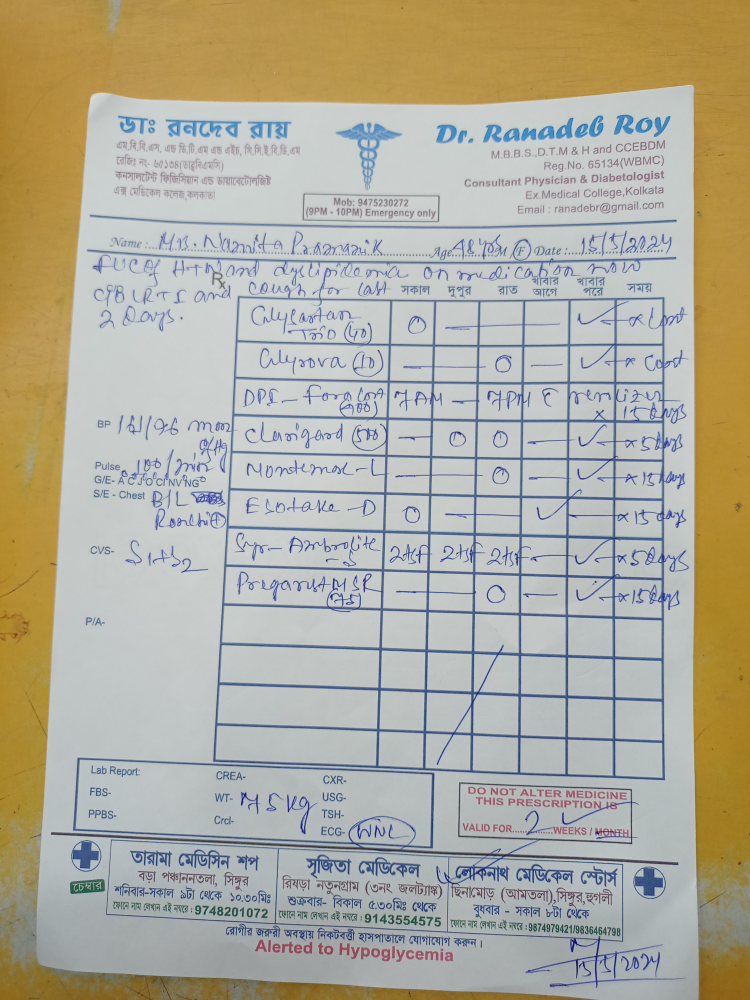 ডাঃ রনদেব রায়
এম,বি,বি,এস, এন্ড ডি,টি,এম এন্ড এইচ, সি,সি,ই,বি,ডি,এম
রেজিঃ নং- ৬৫১৩৪(ডাব্লুবিএমসি)
কনসালটেন্ট ফিজিসিয়ান এন্ড ডায়াবেটোলজিষ্ট
এক্স মেডিকেল কলেজ,কলকাতা
Mob: 9475230272
(9PM - 10PM) Emergency only
Dr. Ranadeb Roy
M.B.B.S.,D.T.M & H and CCEBDM
Reg.No. 65134(WBMC)
Consultant Physician & Diabetologist
Ex.Medical College,Kolkata
Email : ranadebr@gmail.com
Name : Mrs. Namita Pramanik Age 48 yrs M F Date : 15/5/2024
FUC of HTN and dyslipidemia on medication now
C/B URTI and cough for last
2 days.
Rx
সকাল দুপুর রাত খাবার আগে খাবার পরে সময়
Glysartan Trio (40) O — — ✓ x Cont
Glyrova (10) — O — ✓ x Cont
DPI - Foracort (400) 7AM — 7PM c̄ x 15 days
BP 161/96 mm of Hg
Clarigard (500) — O O — ✓ x 5 days
Pulse 100/min
Montemac-L — O — ✓ x 15 days
G/E- A C J O CI NV NG
S/E - Chest B/L Ronchi (+)
Esotake-D O — ✓ — x 15 days
CVS- S1+S2
Syr- Ambrolite-S 2tsf 2tsf 2tsf — ✓ x 5 days
SR (75) — O — ✓ x 15 days
P/A-
Lab Report: CREA- CXR-
FBS- WT- 75 kg USG-
PPBS- Crcl- TSH-
ECG- WNL
DO NOT ALTER MEDICINE
THIS PRESCRIPTION IS
VALID FOR 2 WEEKS / MONTH
চেম্বার
তারামা মেডিসিন শপ
বড়া পঞ্চাননতলা, সিঙ্গুর
শনিবার-সকাল ৯টা থেকে ১০.৩০মিঃ
ফোনে নাম লেখান এই নম্বরে : 9748201072
সৃজিতা মেডিকেল
রিষড়া নতুনগ্রাম (৩নং জলট্যাঙ্ক)
শুক্রবার- বিকাল ৫.৩০মিঃ থেকে
ফোনে নাম লেখান এই নম্বরে : 9143554575
লোকনাথ মেডিকেল স্টোর্স
ছিনামোড় (আমতলা),সিঙ্গুর,হুগলী
বুধবার - সকাল ৮টা থেকে
ফোনে নাম লেখান এই নম্বরে : 9874979421/9836464798
রোগীর জরুরী অবস্থায় নিকটবর্তী হাসপাতালে যোগাযোগ করুন।
Alerted to Hypoglycemia
15/5/2024